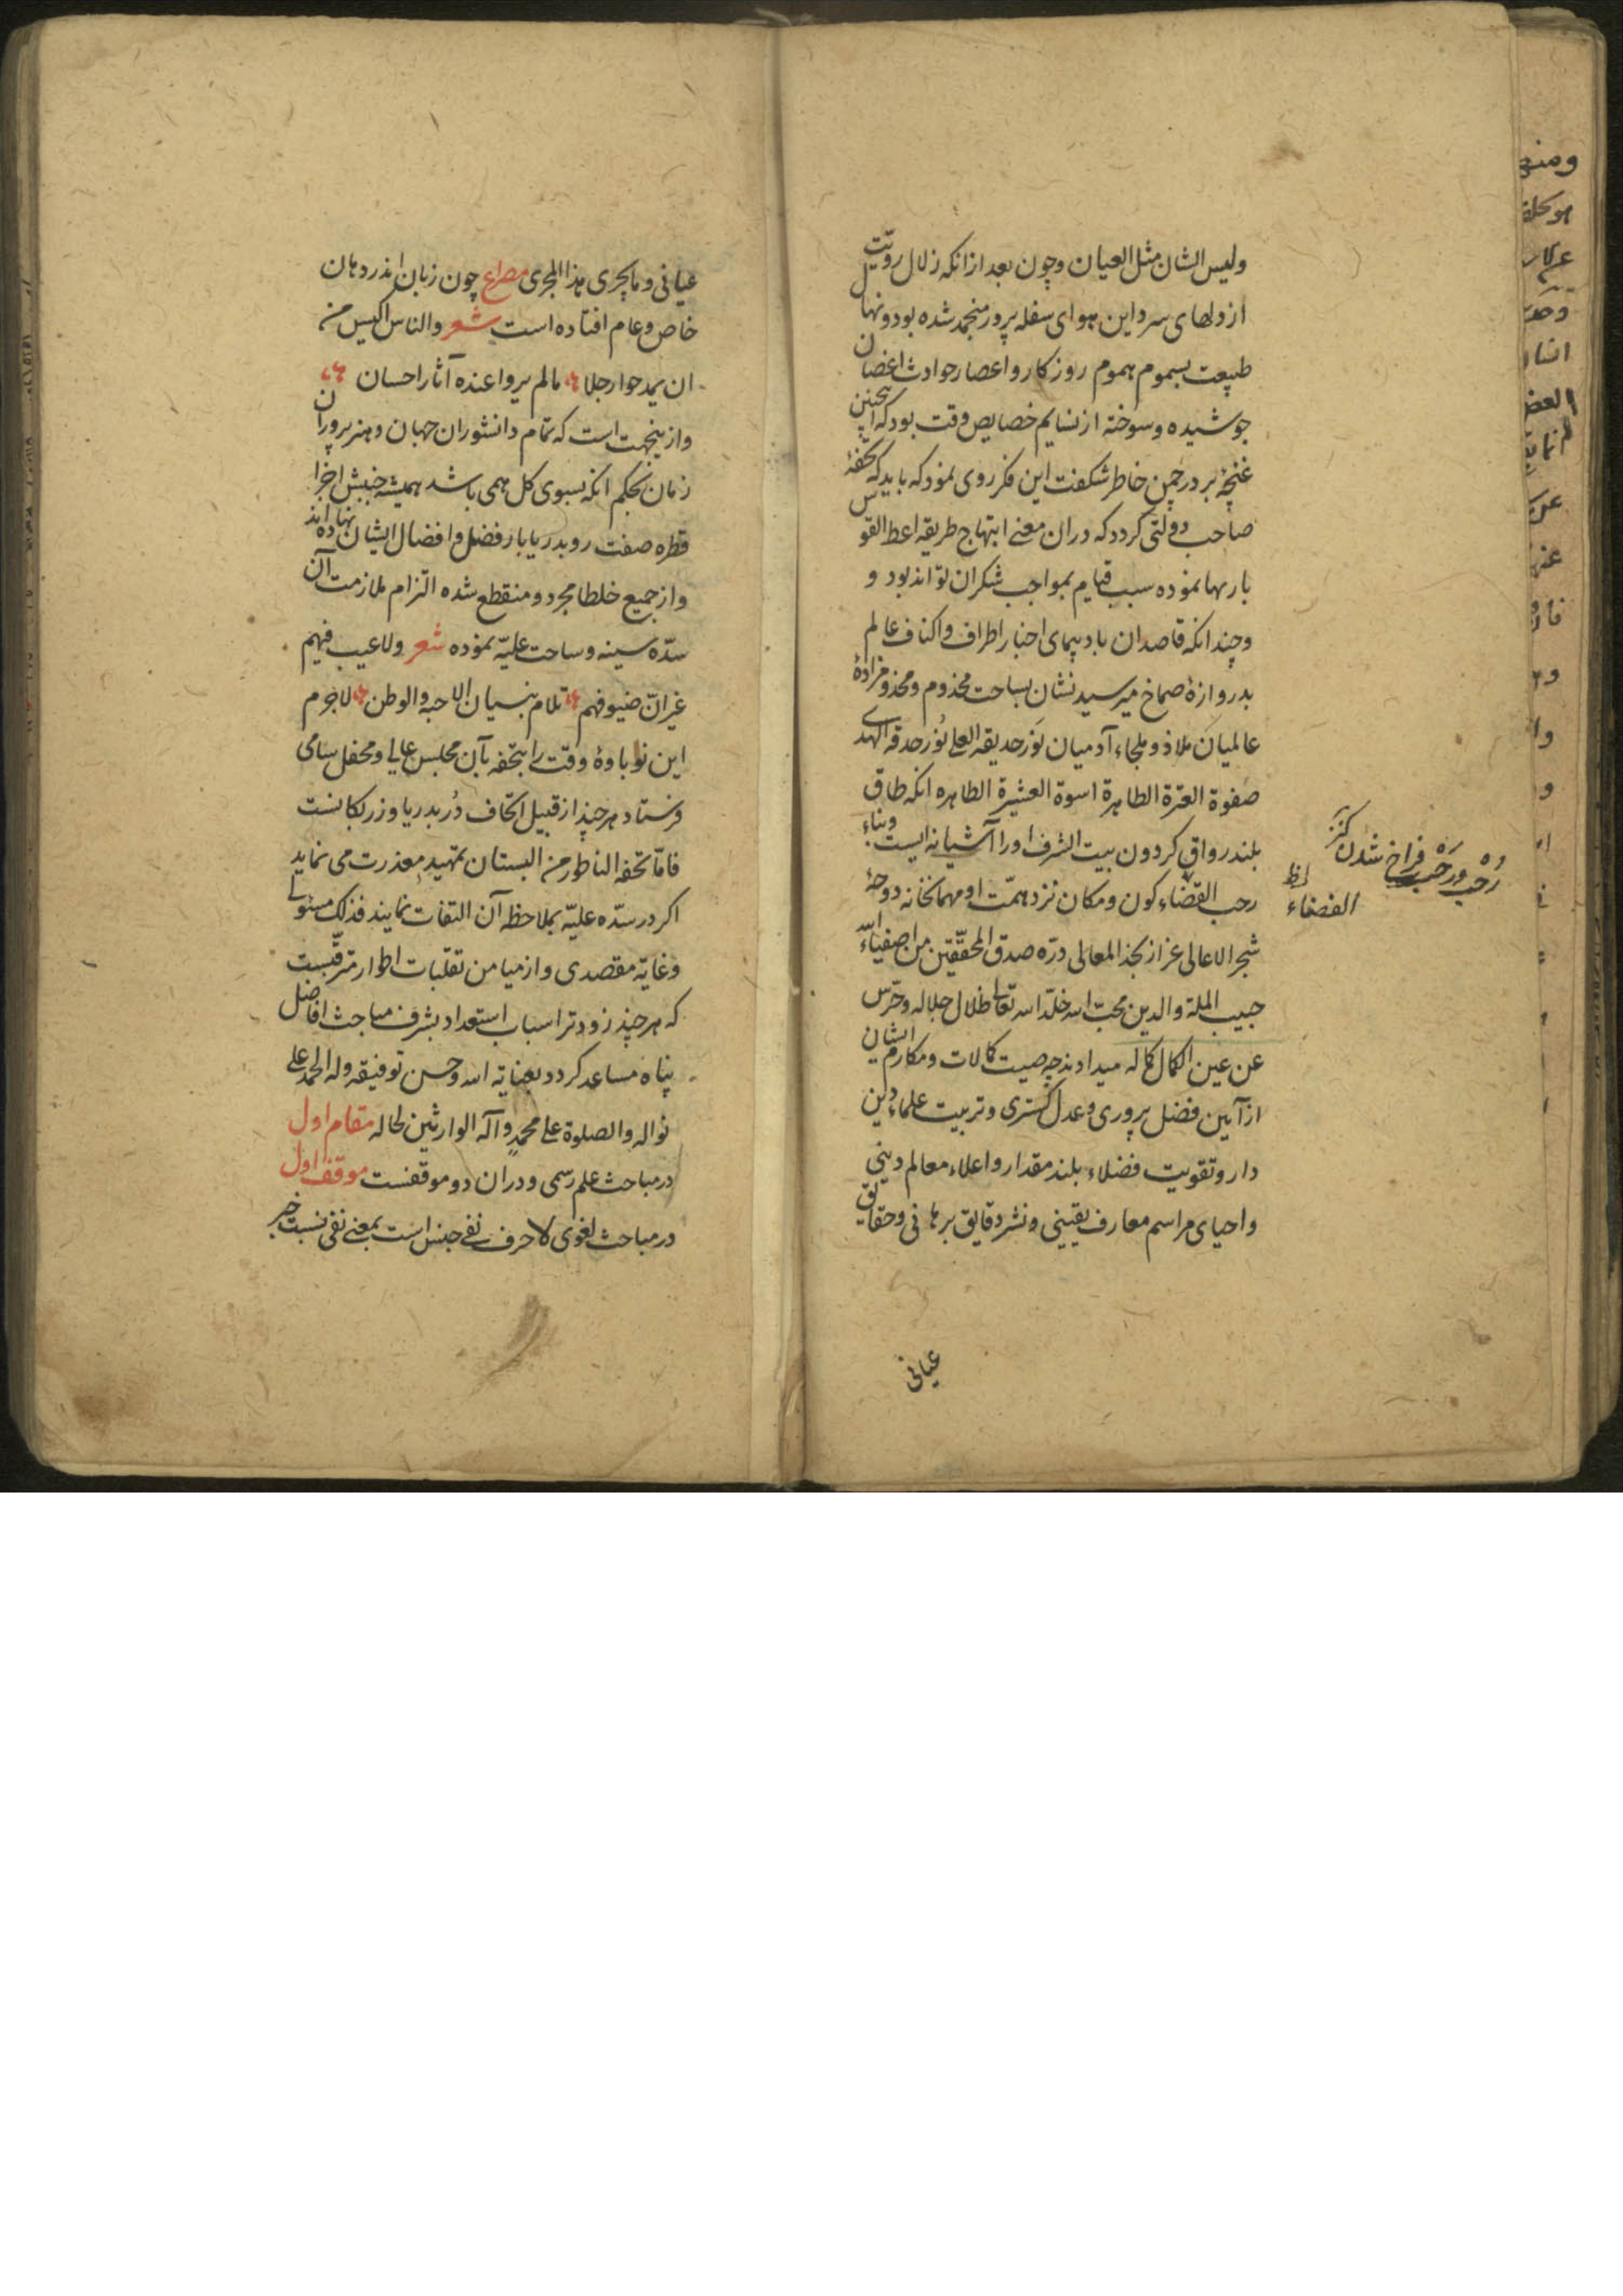 ولیس الشان مثل العیان وچون بعد ازانکه زلال رویّت
از دلهای سرد این هوای سفله پرور منجمد شده بود ونهال
طبیعت بسموم هموم روزکار واعصار حوادث اغصان
جوشیده وسوخته از نسایم خصایص وقت بود که اینچنین
غنچهٔ بر در چمن خاطر شکفت این فکر روی نمود که باید که تحفهٔ
صاحب دولتی کردد که دران معنے ابتهاج طریقه اعط القوس
باریها نموده سبب قیام بمواجب شکران تواند بود و
وچندانکه قاصدان بادپیمای اخبار اطراف واکناف عالم
بدروازهٔ صماخ میرسید نشان بساحت مخدوم ومخدومزادهٔ
عالمیان ملاذ وملجاء آدمیان نَور حدیقه العلے نُور حدقه الهدے
صفوة العترة الطاهرة اسوة العشیرة الطاهره انکه طاق
بلند رواق کردون بیت الشرف اورا آشیانه ایست وبناء
رحب القضاء کون ومکان نزد همّت او مهمانخانه دوحهٔ
شجر الاعالی غر از نجد المعالی درّه صدق المحقّقین من اصفیاء اللّه
حبیب الملة والدین محبّ الله خلّد الله تعالے ظلال جلاله وحرّس
عن عین الکمال کماله میدادند چه صیت کمالات ومکارم ایشان
از آیین فضل پروری وعدل کستری وتربیت علماء دین
دار وتقویت فضلاء بلند مقدار واعلاء معالم دینی
واحیای مراسم معارف یقینی ونشر دقایق برهانی وحقایق
عیانی
رُحْب ورَحْب فراخ شدن کنز
الفضاء ظ
عیانی وما یجری هذا المجری مصراع چون زبان اندر دهان
خاص وعام افتاده است شعر والناس اکیس من
ان یمدحوا رجلا مالم یروا عنده آثار احسان
وازینجهت است که تمام دانشوران جهان وهنرپروران
زمان بحکم انکه بسوی کل همی باشد همیشه جنبش اجزا
قطره صفت رو بدریابار فضل وافضال ایشان نهاده اند
واز جمیع خلطا مجرد ومنقطع شده التزام ملازمت آن
سدّه سینه وساحت علیّه نموده شعر ولا عیب فیهم
غیر انّ ضیوفهم تلام بنسیان الاحبه والوطن لاجرم
این نوباوهٔ وقت را بتحفه بآن مجلس عالے ومحفل سامی
فرستاد هرچند از قبیل اتحاف دُر بدریا وزر بکانست
فامّا تحفه الناطور من البستان تمهید معذرت می نماید
اکر در سدّه علیّه بملاحظه آن التفات نمایند فذلک مسئولے
وغایة مقصدی واز میامن تقلبات اطوار مترقّبست
که هرچند زودتر اسباب استعداد بشرف مباحث افاضل
پناه مساعد کردد بعنایة الله وحسن توفیقه وله الحمد علے
نواله والصلوة علے محمدٍ وآله الوارثین لحاله مقام اول
در مباحث علم رسمی ودران دو موقفست موقف اول
در مباحث لغوی لا حرف نفے جنس است بمعنے نفی نسبت خبر